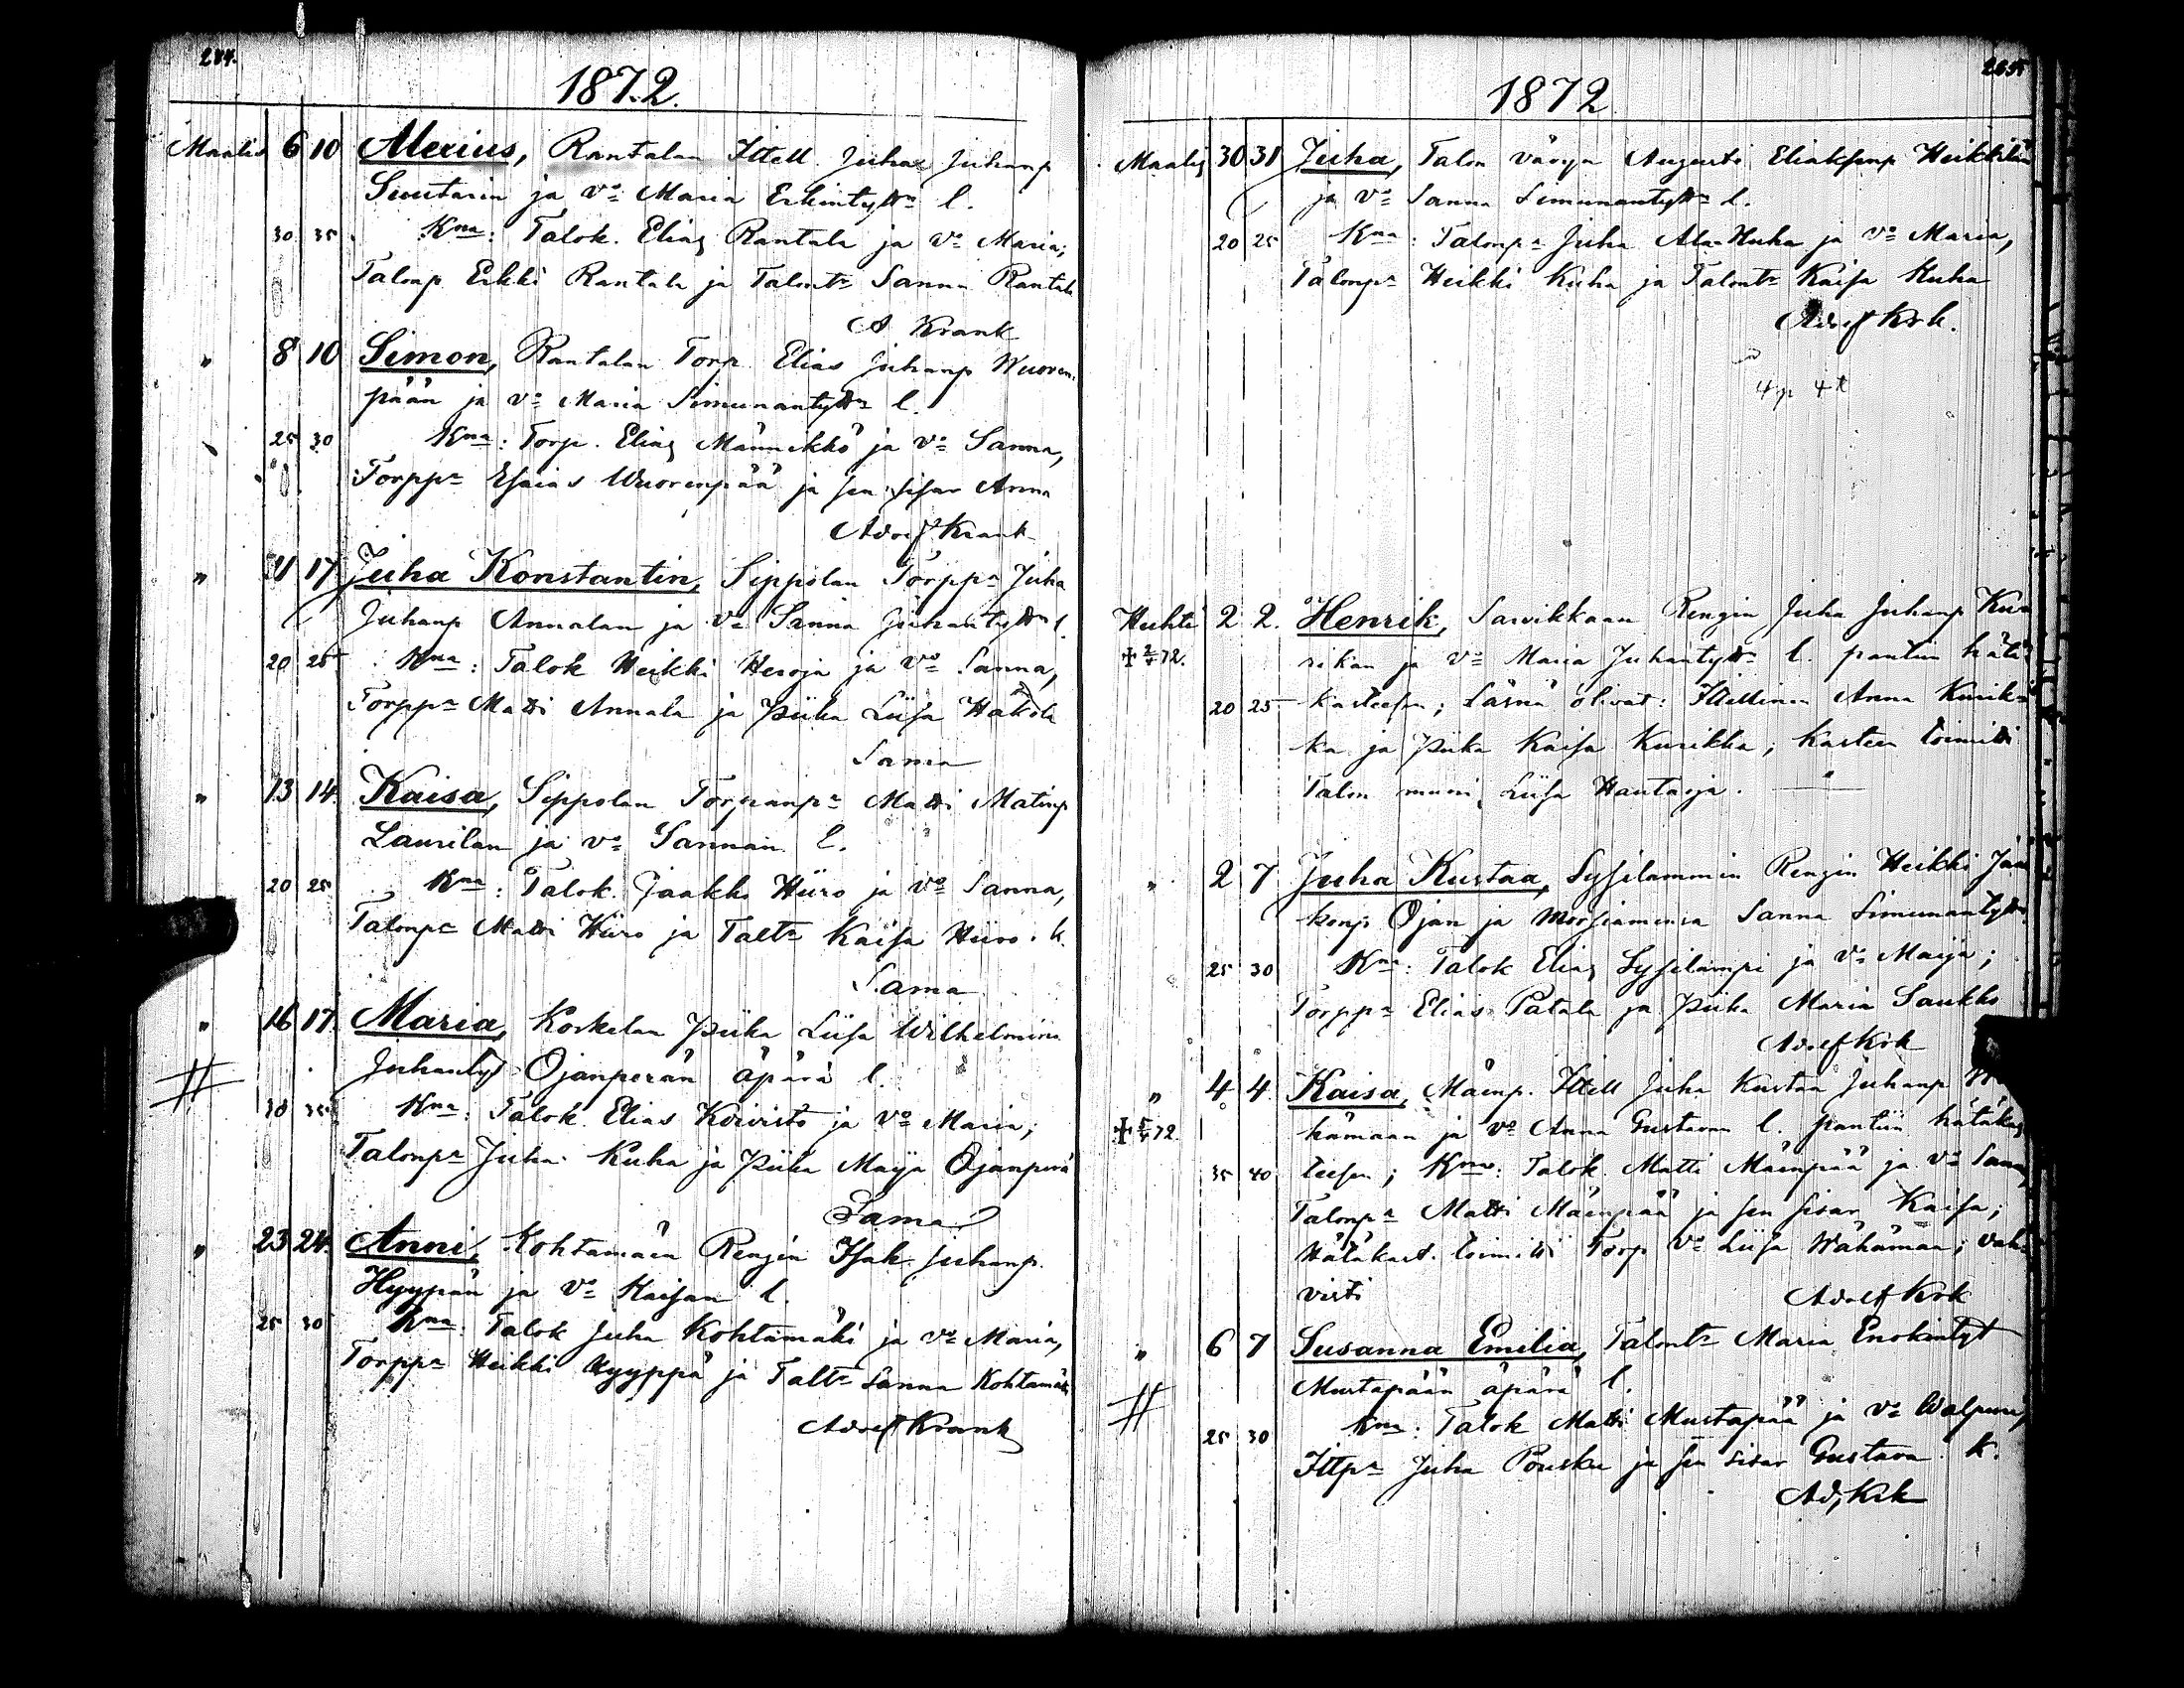 284.
1872.
Maalis 6 10 Alexius, Rantalan Ittell. Juha Juhanp
Suutarin ja vo Maria Erkintyttn l.
30 35 Kna: Talok. Elias Rantala ja vo Maria;
Talonp Erkki Rantala ja Talontr Sanna Rantala
A Krank
" 8 10 Simon, Rantalan Torp. Elias Juhanp Wuoren-
pään ja vo Maria Simunantyttn l.
25 30 Kna: Torp. Elias Männikkö ja vo Sanna,
Torppr Esaias Wuorenpää ja sen sisar Anna
Adolf Krank
" 11 17 Juha Konstantin, Sippolan Torppn Juha
Juhanp Annalan ja vo Sanna Juhantyttn l.
20 25 Kna: Talok Heikki Heroja ja vo Sanna,
Torppr Matti Annala ja Piika Liisa Hakola
Sama
" 13 14. Kaisa, Sippolan Torpanpr Matti Matinp
Laurilan ja vo Sannan l.
20 25 Kna: Talok. Jaakko Hiiro ja vo Sanna,
Talonpr Matti Hiiro ja Taltr Kaisa Hiiro. k.
Sama
" 16 17 Maria, Korkelan Piika Liisa Wilhelmina
Juhantyt Ojanperän äpärä l.
30 35 Kna: Talok. Elias Koivisto ja vo Maria;
Talonpr Juha Kuha ja Piika Maija Ojanperä
Sama
" 23 24. Anni, Kohtamäen Rengin Isak Juhanp.
Hyypän ja vo Kaisan l.
25 30 Kna: Talok Juha Kohtamäki ja vo Maria,
Torppr Heikki Hyyppä ja Taltr Sanna Kohtamäki
Adolf Krank
285
1872
Maalis 30 31 Juha, Talon vävyn Augusti Eliaksenp Heikkilän
ja vo Sanna Simunantyttn l.
20 25 Kna: Talonpr Juha Ala-Kuha ja vo Maria,
Talonpr Heikki Kuha ja Talontr Kaisa Kuha
Adolf Krk.
4 p 4 t
Huhti 2 2. Henrik, Sarvikkaan Rengin Juha Juhanp Ku
✝ 2/4 72. rikan ja vo Maria Juhantyttn l. pantiin hätä
20 25 kasteesen; Läsnä olivat: Ittellinen Anna Kurik-
ka ja Piika Kaisa Kurikka; kasteen toimitti
Talon muori Liisa Hautaoja.
" 2 7 Juha Kustaa, Sysilammin Rengin Heikki Jaa
konp Ojan ja Morsiamensa Sanna Simunantytt
25 30 Kna: Talok Elias Sysilampi ja vo Maija;
Torppr Elias Patala ja Piika Maria Saukko
Adolf Krk
" 4 4. Kaisa, Mäenp. Ittell Juha Kustaa Juhanp
✝ 5/4 72. hämaan ja vo Anna Gustavan l. pantiin hätäkas
35 40 teesen; Kna: Talok. Matti Mäenpää ja vo Sanna,
Talonpr Matti Mäenpää ja sen sisar Kaisa;
Hätäkast. toimitti Torp vo Liisa Wähämaa; vah-
visti Adolf Krk
" 6 7 Susanna Emilia, Talontr Maria Enokintyt
Mustapään äpärä l.
25 30 Kna: Talok Matti Mustapää ja vo Walpuri,
Ittpr Juha Pousku ja sen sisar Gustava. k.
Ad, Krk